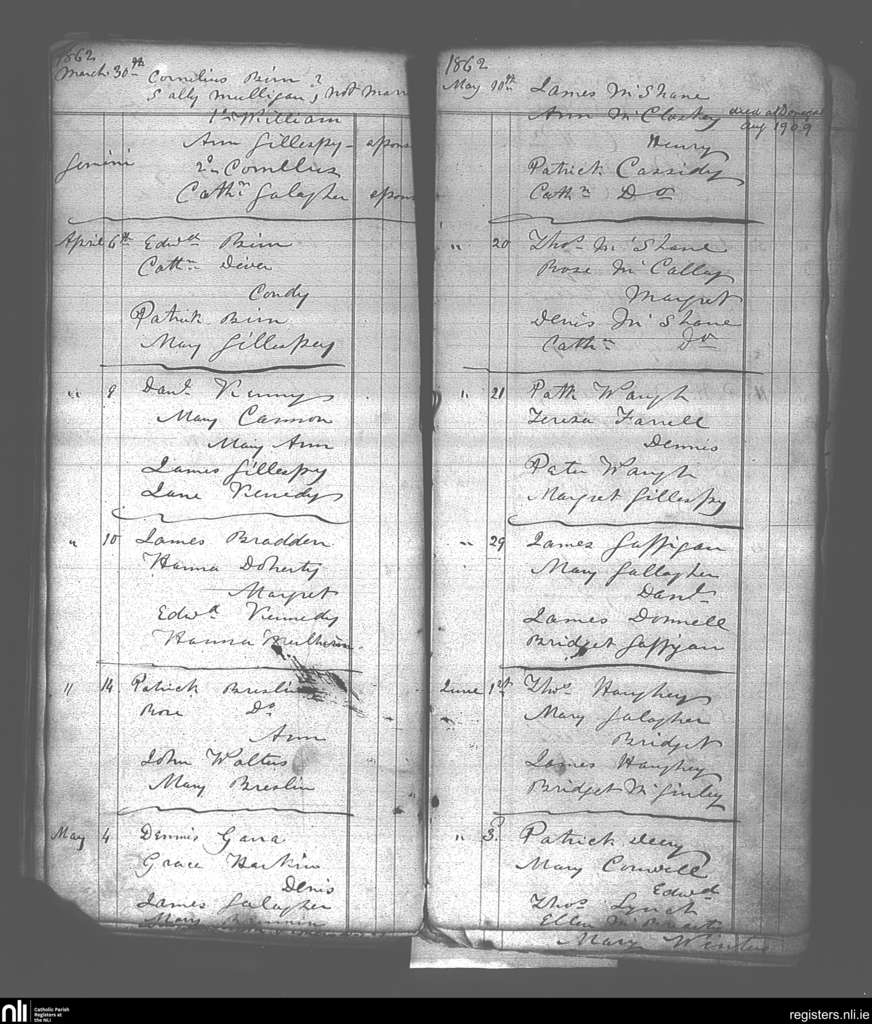 1862
March 30th Cornelius Birn ?
Sally Mulligan, not Marr
1o William
Ann Gillespy - spons
Gemini
2o Cornelius
Cathn Galagher spons
April 6th Edwd Birn
Cathn Diver
Condy
Patrick Birn
May Gillespey
" 9 Danl Kenny
Mary Cannon
Mary Ann
James Gillespy
Jane Kenedy
" 10 James Bradden
Hanna Doherty
Margret
Edwd Kennedy
Hanna
" 14 Patrick Breslin
Rose Do
Ann
John Walters
Mary Breslin
May 4 Dennis Gara
Grace Harkin
Denis
James Galagher
Mary
1862
May 10th James McShane
Ann McCloskey died at Donegal
Aug 1909
Henry
Patrick Cassidy
Cathn Do
" 20 Thos McShane
Rose McCallay
Margret
Denis McShane
Cathn Do
" 21 Patk Waugh
Teresa Farrell
Dennis
Peter Waugh
Margret Gillespy
" 29 James Gaffigan
Mary Gallagher
Danl
James Donnell
Bridget Gaffigan
June 1st Thos Haughey
Mary Galagher
Bridget
James Haughey
Bridget McGinley
" 3 Patrick deery
Mary Conwell
Edwd
Thos Lynch
Ellen
Mary Winters
nli
Catholic Parish
Registers at
the NLI
registers.nli.ie